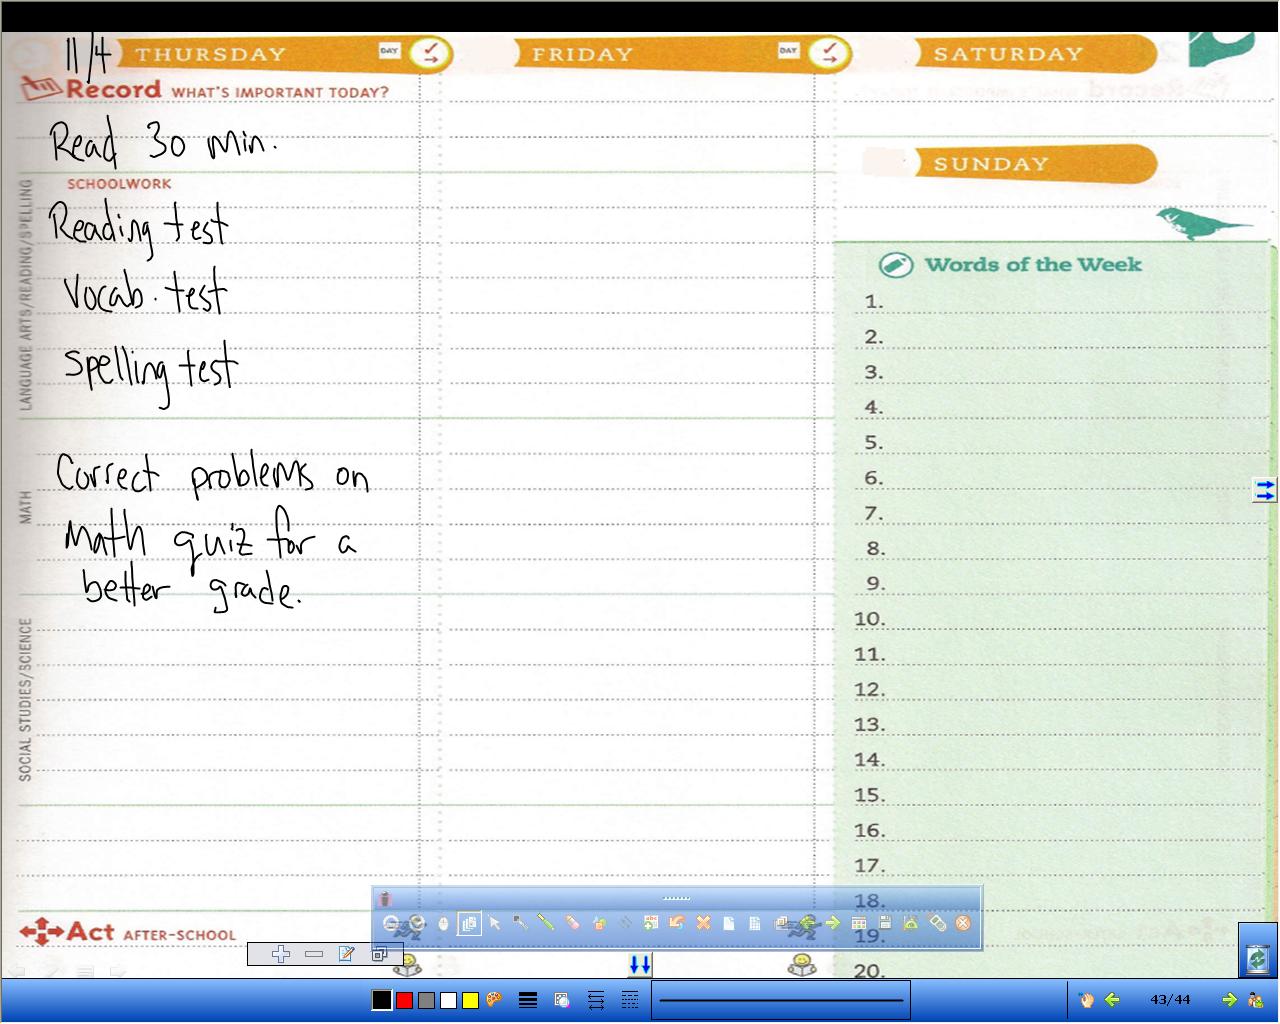 11/4 THURSDAY DAY
FRIDAY DAY
SATURDAY
Record WHAT'S IMPORTANT TODAY?
Read 30 min.
SUNDAY
SCHOOLWORK
LANGUAGE ARTS/READING/SPELLING
Reading test
Vocab. test
Spelling test
MATH
Correct problems on
math quiz for a
better grade.
SOCIAL STUDIES/SCIENCE
Words of the Week
1.
2.
3.
4.
5.
6.
7.
8.
9.
10.
11.
12.
13.
14.
15.
16.
17.
18.
19.
20.
Act AFTER-SCHOOL
43/44